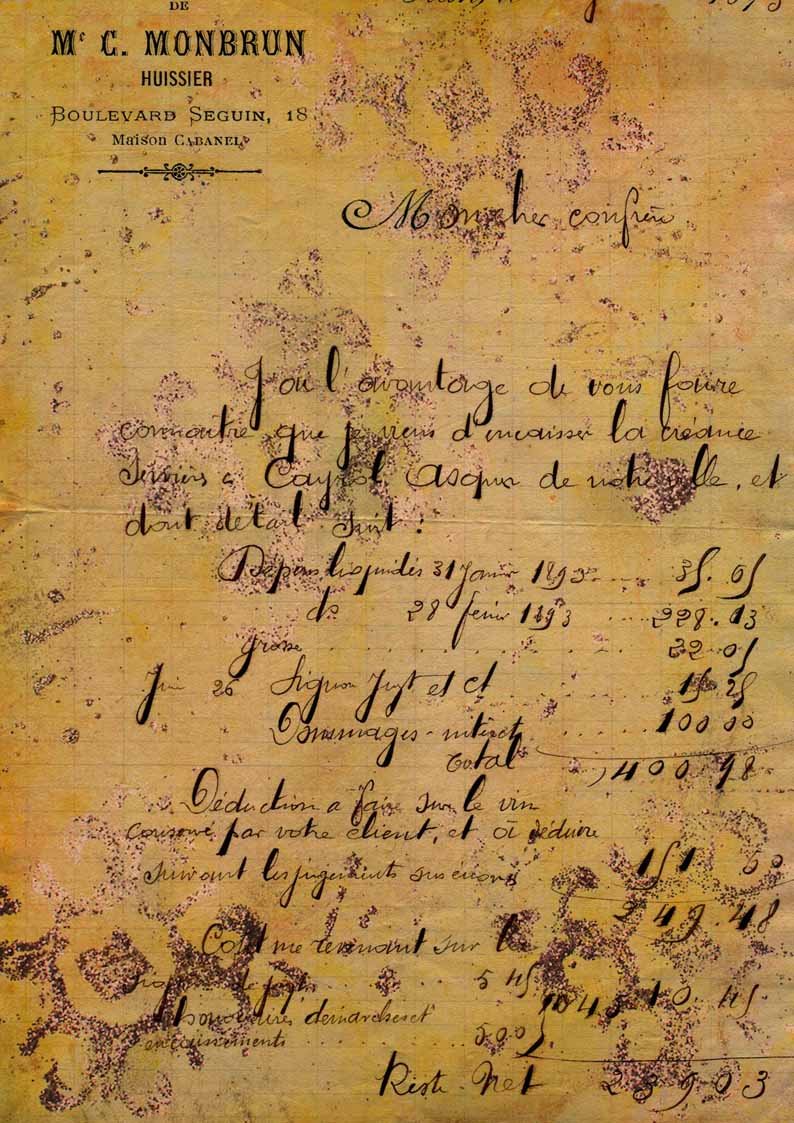 DE
Mᵉ C. MONBRUN
HUISSIER
BOULEVARD SEGUIN, 18
Maison CABANEL
Mon cher confrère
J'ai l'avantage de vous faire
connaitre que je viens d'encaisser la créance
Cayrol de notre ville, et
dont détail suit :
Dépens liquidés 31 Janvier 1893 35.05
do 28 février 1893 228.13
grosse 22.05
Juin 26 Signon Jugt et ct 15 25
Dommages-intérêt 100 00
total 400 98
Déduction a faire sur le vin
consommé par votre client, et à déduire
suivant les jugements susénoncés 151 50
249.48
Coût me revenant sur la
5 45
10.45 10.45
honoraires démarches et
encaissements 5 00
Reste Net 239 03